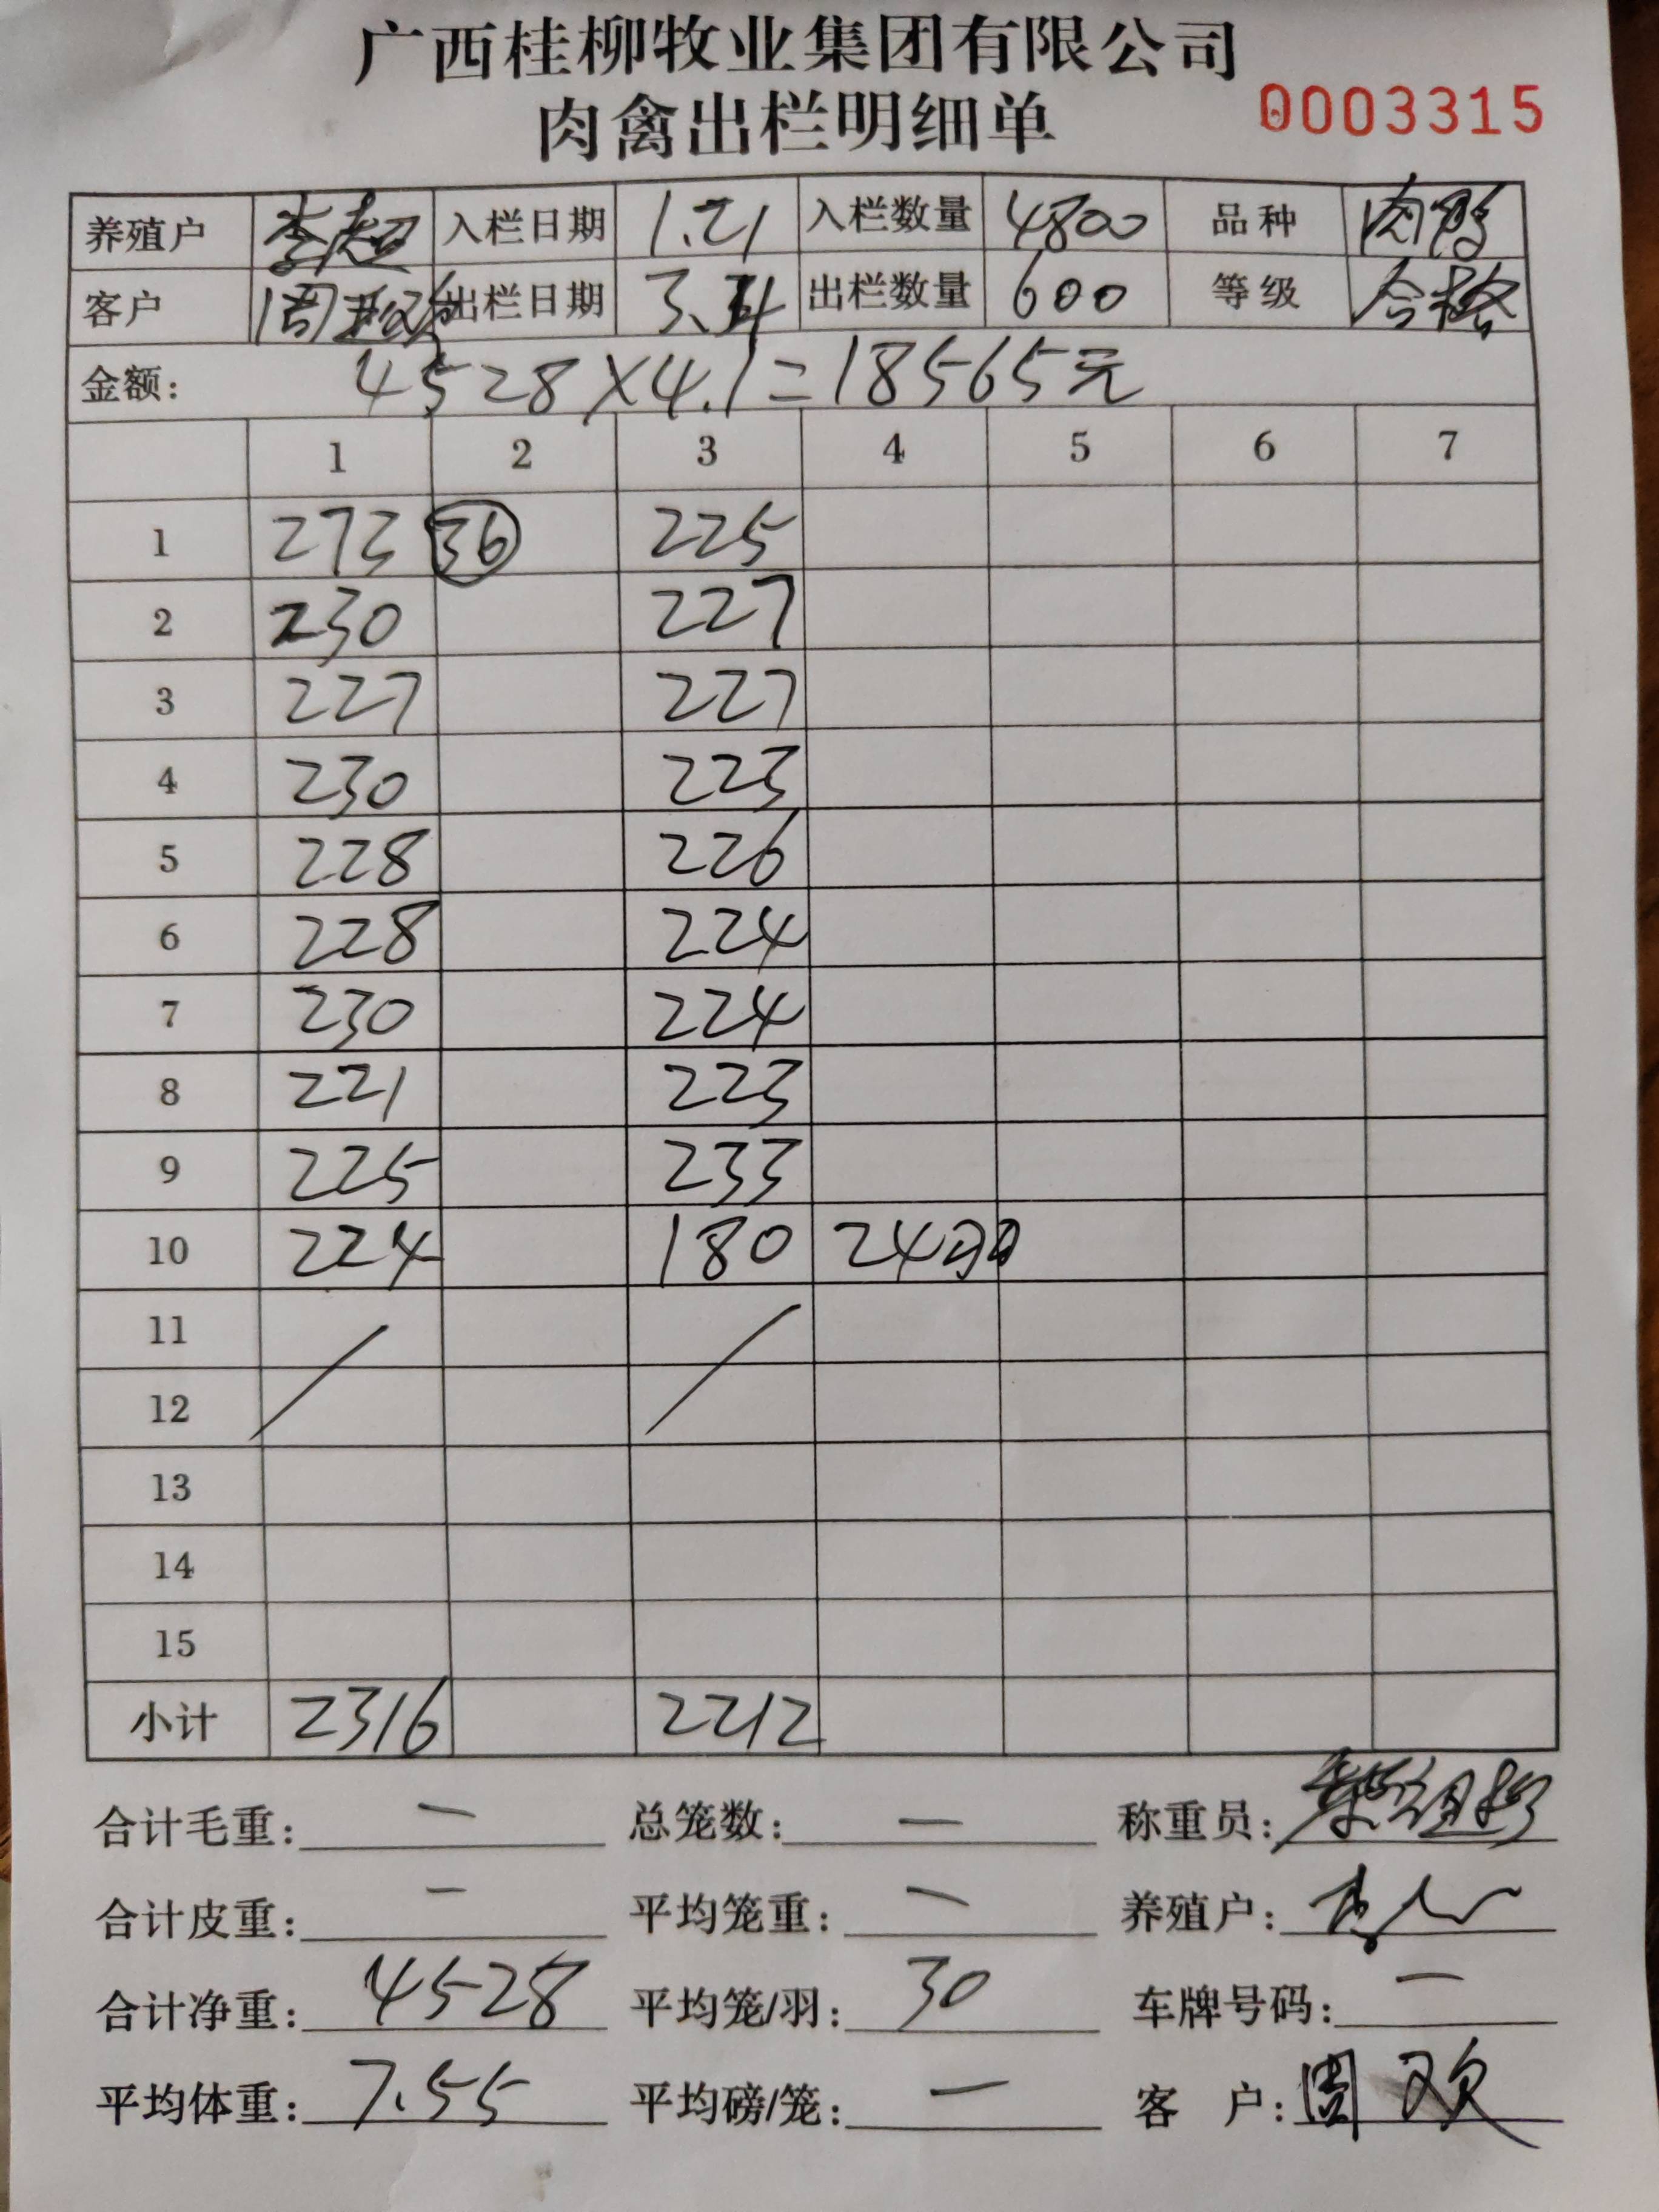 广西桂柳牧业集团有限公司
肉禽出栏明细单 0003315
养殖户 李超 入栏日期 1.21 入栏数量 4800 品种 肉鸭
客户 出栏日期 出栏数量 600 等级 合格
金额: 4528×4.1=18565元
1 2 3 4 5 6 7
1 273 36 225
2 230 227
3 227 227
4 230 223
5 228 226
6 228 224
7 230 224
8 221 223
9 225 233
10 224 180 24羽
11
12
13
14
15
小计 2316 2212
合计毛重: — 总笼数: — 称重员:
合计皮重: — 平均笼重: — 养殖户:
合计净重: 4528 平均笼/羽: 30 车牌号码: —
平均体重: 7.55 平均磅/笼: — 客 户: 周欢